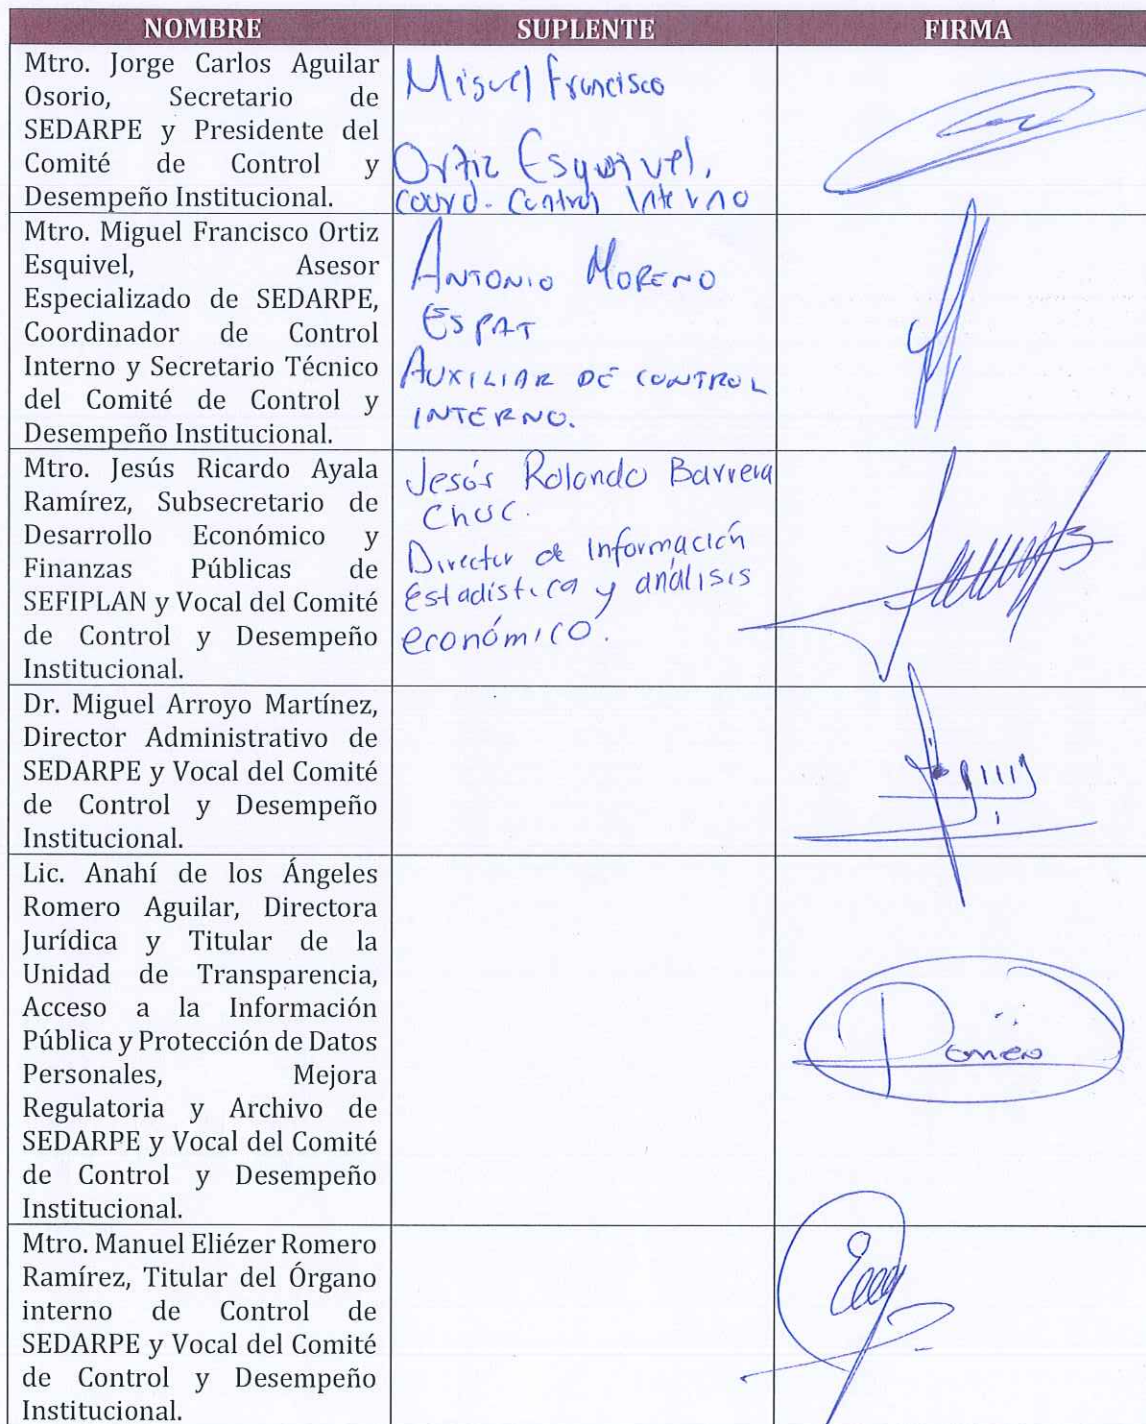 NOMBRE SUPLENTE FIRMA
Mtro. Jorge Carlos Aguilar
Osorio, Secretario de
SEDARPE y Presidente del
Comité de Control y
Desempeño Institucional.
Miguel Francisco
Ortiz Esquivel,
Coord. Control Interno
Mtro. Miguel Francisco Ortiz
Esquivel, Asesor
Especializado de SEDARPE,
Coordinador de Control
Interno y Secretario Técnico
del Comité de Control y
Desempeño Institucional.
ANTONIO MORENO
ESPAT
AUXILIAR DE CONTROL
INTERNO.
Mtro. Jesús Ricardo Ayala
Ramírez, Subsecretario de
Desarrollo Económico y
Finanzas Públicas de
SEFIPLAN y Vocal del Comité
de Control y Desempeño
Institucional.
Jesús Rolando Barrera
Chuc.
Director de Información
Estadística y análisis
económico.
Dr. Miguel Arroyo Martínez,
Director Administrativo de
SEDARPE y Vocal del Comité
de Control y Desempeño
Institucional.
Lic. Anahí de los Ángeles
Romero Aguilar, Directora
Jurídica y Titular de la
Unidad de Transparencia,
Acceso a la Información
Pública y Protección de Datos
Personales, Mejora
Regulatoria y Archivo de
SEDARPE y Vocal del Comité
de Control y Desempeño
Institucional.
Mtro. Manuel Eliézer Romero
Ramírez, Titular del Órgano
interno de Control de
SEDARPE y Vocal del Comité
de Control y Desempeño
Institucional.